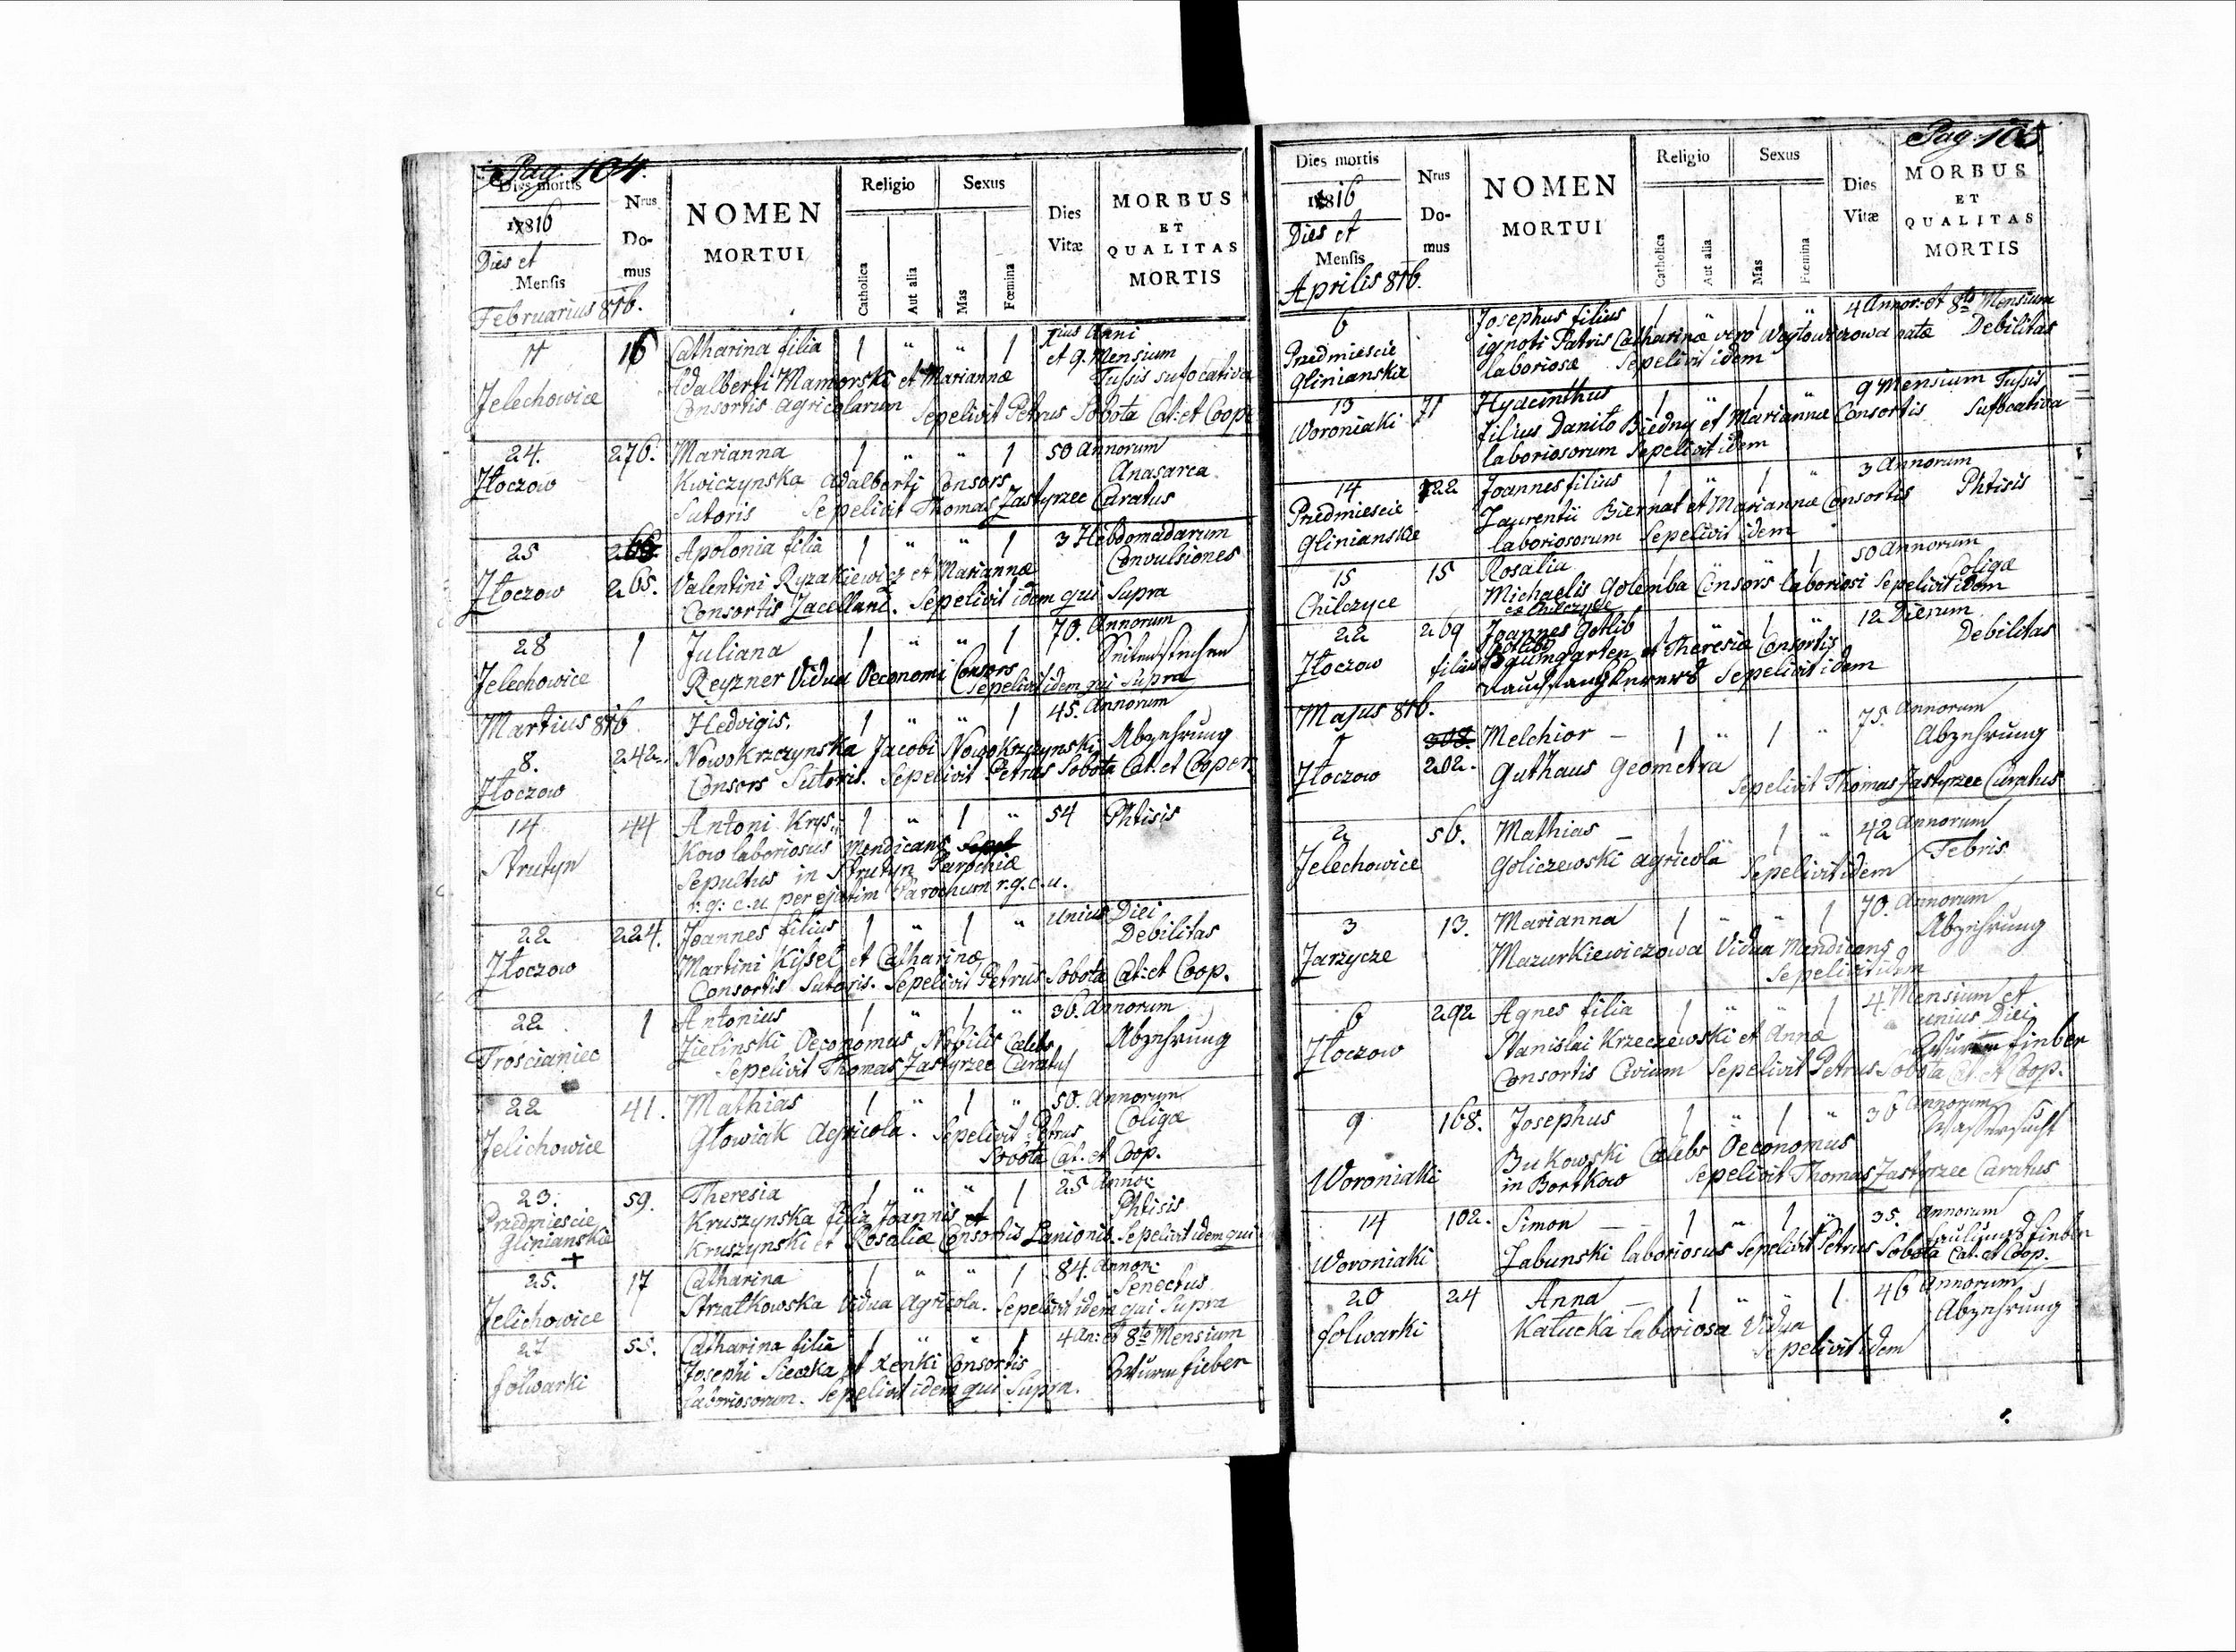 Pag. 104.
Dies mortis
Nrus Domus
NOMEN MORTUI
Religio
Sexus
Dies Vitæ
MORBUS ET QUALITAS MORTIS
1816
Dies et
Mensis
Catholica
Aut alia
Mas
Fœmina
Februarius 816.
17 16 Catharina filia 1 " " 1 1ius Anni
et 9. Mensium
Jelechowice Adalberti Mamorski et Mariannæ Tussis sufocativa
Consortis agricolarum Sepelivit Petrus Sobota Cat: et Coop
24. 276. Marianna 1 " " 1 50 Annorum
Złoczow Kwiczynska Adalberti Consors Anasarca
Sutoris Sepelivit Thomas Zastyrzec Curatus
25 266. Apolonia filia 1 " " 1 3 Hebdomadarum
Convulsiones
Złoczow 265. Valentini Ryzakiewicz et Mariannæ
Consortis Sepelivit idem qui Supra
28 1 Juliana 1 " " 1 70. Annorum
Seitenstechen
Jelechowice Reyzner Vidua Oeconomi Consors
Sepelivit idem qui Supra
Martius 816. Hedvigis. 1 " " 1 45. Annorum
8. 242. Nowokrzczynska Jacobi Nowokrzczynski Abzehrung
Złoczow Consors Sutoris. Sepelivit Petrus Sobota Cat. et Cooper
14 44 Antoni Krys„ 1 " 1 " 54 Phtisis
Strutyn kow laboriosus Mendicans
Sepultus in Strutyn Parochiæ
r. g: c. u. per ejatim Parochum r. g. c. u.
22 224. Joannes filius 1 " 1 " Unius Diei
Debilitas
Złoczow Martini Kissel et Catharinæ
Consortis Sutoris. Sepelivit Petrus Sobota Cat: et Coop.
22 1 Antonius 1 " 1 " 36. Annorum
Troscianiec Zielinski Oeconomus Nobilis Calebs Abzehrung
Sepelivit Thomas Zastyrzec Curatus
22 41. Mathias 1 " 1 " 50. Annorum
Jelichowice Głowiak Agricola. Sepelivit Petrus Coliga
Sobota Cat. et Coop.
23. 59. Theresia 1 " " 1 25 Annor.
Przedmiescie Kruszynska filia Joannis et Phtisis
Glinianskie Kruszynski et Rosaliæ Consortis Lanionis. Sepelivit idem qui
25. 17 Catharina 1 " " 1 84. Annor:
Senectus
Jelichowice Strzałkowska Vidua Agricola. Sepelivit idem qui Supra
27 55. Catharina filia 1 " " 1 4 An: et 8to Mensium
folwarki Josephi Sieczka et Xenki Consortis Wurmfieber
Laboriosorum. Sepelivit idem qui Supra.
Pag. 105
Dies mortis
Nrus Domus
NOMEN MORTUI
Religio
Sexus
Dies Vitæ
MORBUS ET QUALITAS MORTIS
1816
Dies et
Mensis
Catholica
Aut alia
Mas
Fœmina
Aprilis 816.
6 Josephus filius 1 " 1 " 4 Annor: et 8to Mensium
Przedmiescie ignoti Patris Catharinæ vero Woytowiczowa natæ Debilitas
Glinianskie laboriosæ Sepelivit idem
13 71 Hyacinthus 1 " 1 " 9 Mensium Tussis
Woroniaki filius Danilo Biedny et Mariannæ Consortis Sufocativa
laboriosorum Sepelivit idem
14 122 Joannes filius 1 " 1 " 3 Annorum
Przedmiescie Laurentii Biernat et Mariannæ Consortis Phtisis
Glinianskie laboriosorum Sepelivit idem
15 15 Rosalia 1 " " 1 50 Annorum
Coliga
Chilczyce Michaelis Golemba Consors laboriosi Sepelivit idem
ex Chilczyce
22 269 Joannes Gotlib 1 " 1 " 12 Dierum
Gotlibi
Złoczow filius Baumgarten et Theresiæ Consortis Debilitas
Rauchfangkerers Sepelivit idem
Majus 816.
1 308. Melchior – 1 " 1 " 75. Annorum
Abzehrung
Złoczow 202. Guthaus Geometra
Sepelivit Thomas Zastyrzec Curatus
2 56. Mathias – 1 " 1 " 42 Annorum
Jelechowice Goliczewski agricola Febris
Sepelivit idem
3 13. Marianna 1 " " 1 70. Annorum
Abzehrung
Jarzycze Mazurkiewiczowa Vidua Mendicans
Sepelivit idem
6 292 Agnes filia 1 " " 1 4. Mensium et
unius Diei
Złoczow Stanislai Krzeczewski et Annæ Wurmfieber
Consortis Civium Sepelivit Petrus Sobota Cat. et Coop.
9 168. Josephus 1 " 1 " 36 Annorum
Wassersucht
Woroniaki Bukowski Calebs Oeconomus
in Bortkow Sepelivit Thomas Zastyrzec Curatus
14 102. Simon – – 1 " 1 " 35. Annorum
Faulungsfieber
Woroniaki Zabunski laboriosus Sepelivit Petrus Sobota Cat. et Coop.
20 24 Anna – 1 " " 1 46 Annorum
folwarki Katucka laboriosa Vidua Abzehrung
Sepelivit idem